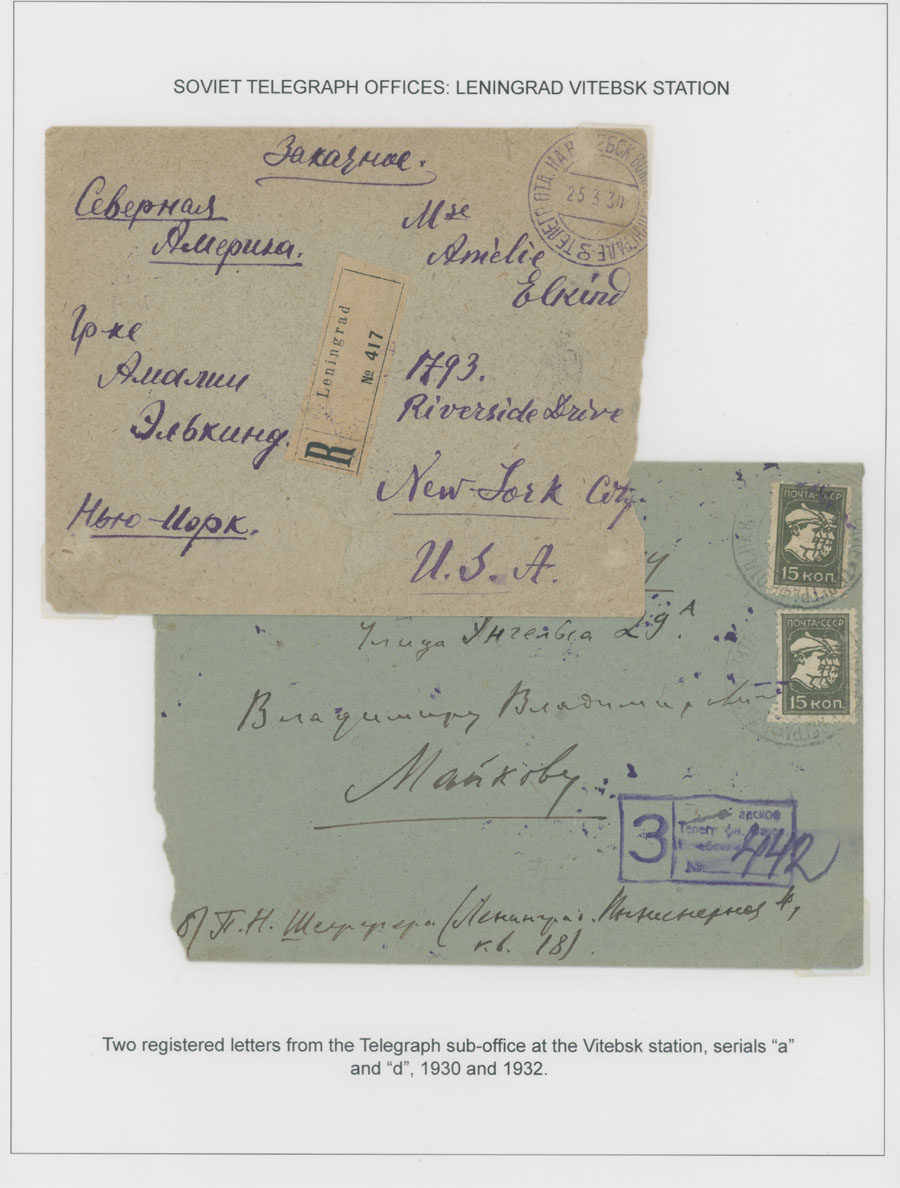 SOVIET TELEGRAPH OFFICES: LENINGRAD VITEBSK STATION
Заказное.
Северная
Америка.
Гр-ке
Амалии
Элькинд.
Нью-Йорк.
25 3 30
Mse
Amélie
Elkind
1793.
Riverside Drive
New-York City.
U.S.A.
R Leningrad
№ 417
ПОЧТА-СССР
15 КОП.
ПОЧТА-СССР
15 КОП.
Улица Энгельса
Владимиру
Майкову.
З
№ 442
П. Н. (Ленинград. Инженерная 4,
кв. 18).
Two registered letters from the Telegraph sub-office at the Vitebsk station, serials “a”
and “d”, 1930 and 1932.